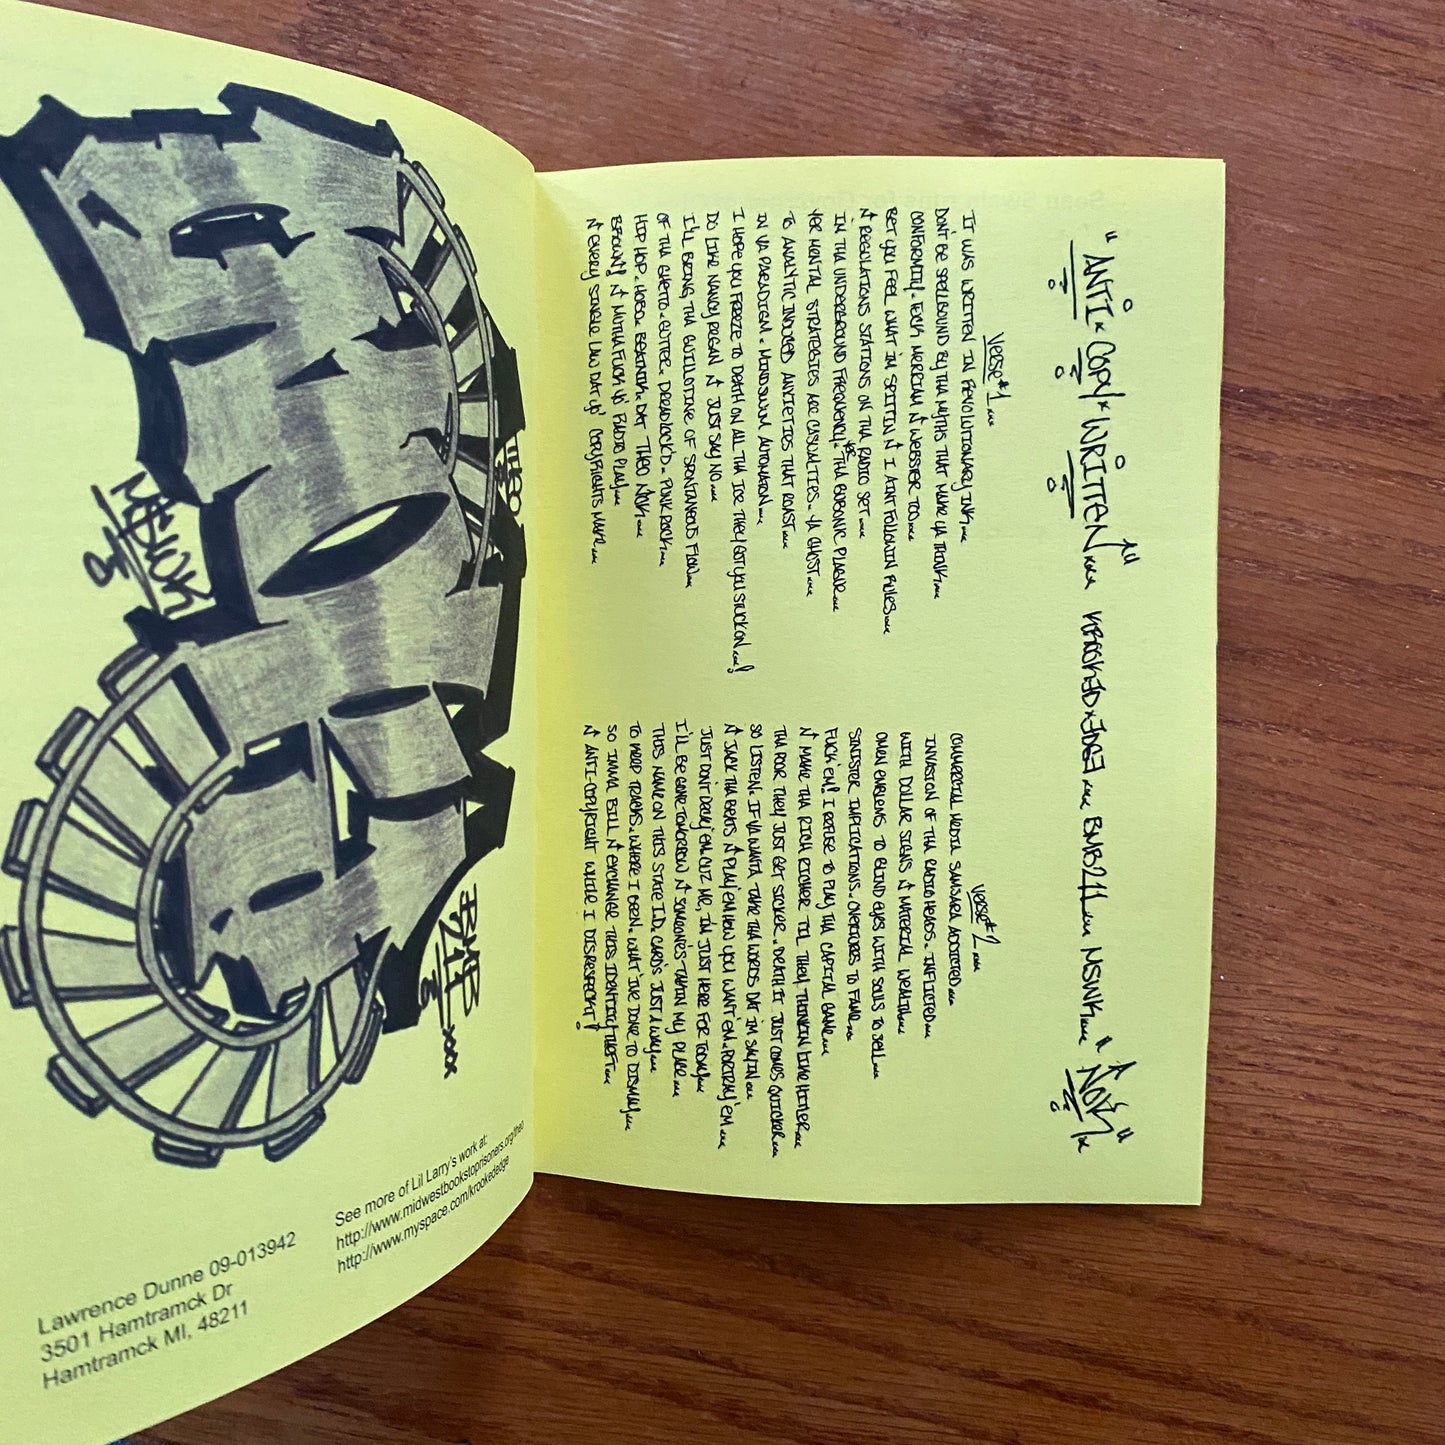 THEO
MESWK
BMB
211...xxx
See more of Lil Larry's work at:
http://www.midwestbookstoprisoners.org/theo
http://www.myspace.com/krookededge
Lawrence Dunne 09-013942
3501 Hamtramck Dr
Hamtramck MI, 48211
"ANTI×COPY×WRITTEN..." KROOKED×EDGE... BMB211... NSNK... "NOK"
VERSE #1...
IT WAS WRITTEN IN REVOLUTIONARY INK...
DON'T BE SPELLBOUND BY THA MYTHS THAT MAKE YA THINK...
CONFORMITY. FUCK MERRIAM N WEBSTER TOO...
BET YOU FEEL WHAT I'M SPITTIN N I AINT FOLLOWIN RULES...
N REGULATIONS STATIONS ON THA RADIO SET...
IN THA UNDERGROUND FREQUENCY. THA BUBONIC PLAGUE...
YER MENTAL STRATEGIES ARE CASUALTIES. YA GHOST...
TO ANALYTIC INDUCED ANXIETIES THAT ROAST...
IN YA PARADIGM. MINDSWUM AUTOMATON...
I HOPE YOU FREEZE TO DEATH ON ALL THA ICE THEY GOT YOU STUCK ON...!
DO LIKE NANCY REGAN N JUST SAY NO...
I'LL BRING THA GUILLOTINE OF SPONTANEOUS FLOW...
OF THA GHETTO. GUTTER. DREADLOCK'D. PUNK ROCK...
HIP HOP. HOBO. BEATNIK. DAT THEO NOK...
BROWN'! N MUTHAFUCK YO' RADIO PLAY...
N EVERY SINGLE LAW DAT YO' COPYRIGHTS MAKE...
VERSE #2...
COMMERCIAL MEDIA SAMSARA ADDICTED...
INVASION OF THA RADIO HEADS. INFLICTED...
WITH DOLLAR SIGNS N MATERIAL WEALTH...
OMEN EMBLEMS TO BLIND EYES WITH SOULS TO SELL...
SINISTER IMPLICATIONS. OVERTURES TO FAME...
FUCK 'EM! I REFUSE TO PLAY THA CAPITAL GAME...
N MAKE THA RICH RICHER TIL THEY THINKIN LIKE HITLER...
THA POOR THEY JUST GET SICKER. DEATH IT JUST COMES QUICKER...
SO LISTEN. IF YA WANTA TAKE THA WORDS DAT I'M SAYIN...
N JACK THA BEATS N PLAY 'EM HOW YOU WANT 'EM. PORTRAY 'EM...
JUST DON'T DECAY 'EM CUZ ME, I'M JUST HERE FOR TODAY...
I'LL BE GONE TOMORROW N SOMEONE'S TAKIN MY PLACE...
THIS NAME ON THIS STATE I.D. CARD'S JUST A WAY...
TO KEEP TRACKS. WHERE I BEEN. WHAT I'VE DONE TO DISMAY...
SO IMMA BILL N EXCHANGE THIS IDENTITY THEFT...
N ANTI-COPYRIGHT WHILE I DISRESPECKT!